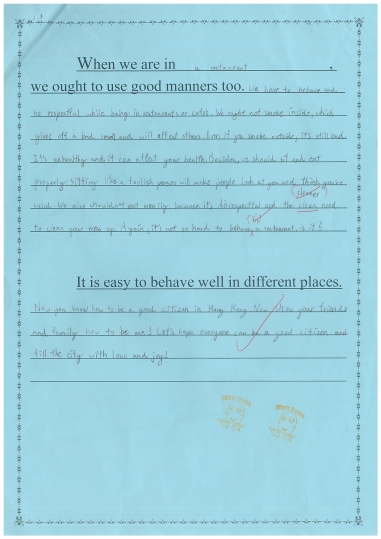 When we are in a restaurant,
we ought to use good manners too. We have to behave and
be respectful while being in restaurants or cafes. We might not smoke inside, which
gives off a bad smell and will affect others. Even if you smoke outside, it's still bad.
It's unhealthy and it can affect your health. Besides, we should sit and eat
properly. Sitting like a foolish person will make people look at you and think you're
weird. We also shouldn't eat messily because it's disrespectful and the clean need
cleaner
to clean your mess up. Again, it's not so hard to behave a restaurant, is it?
(in)
It is easy to behave well in different places.
Now you know how to be a good citizen in Hong Kong. Now show your friends
and family how to be one! Let's hope everyone can be a good citizen and
fill the city with love and joy!